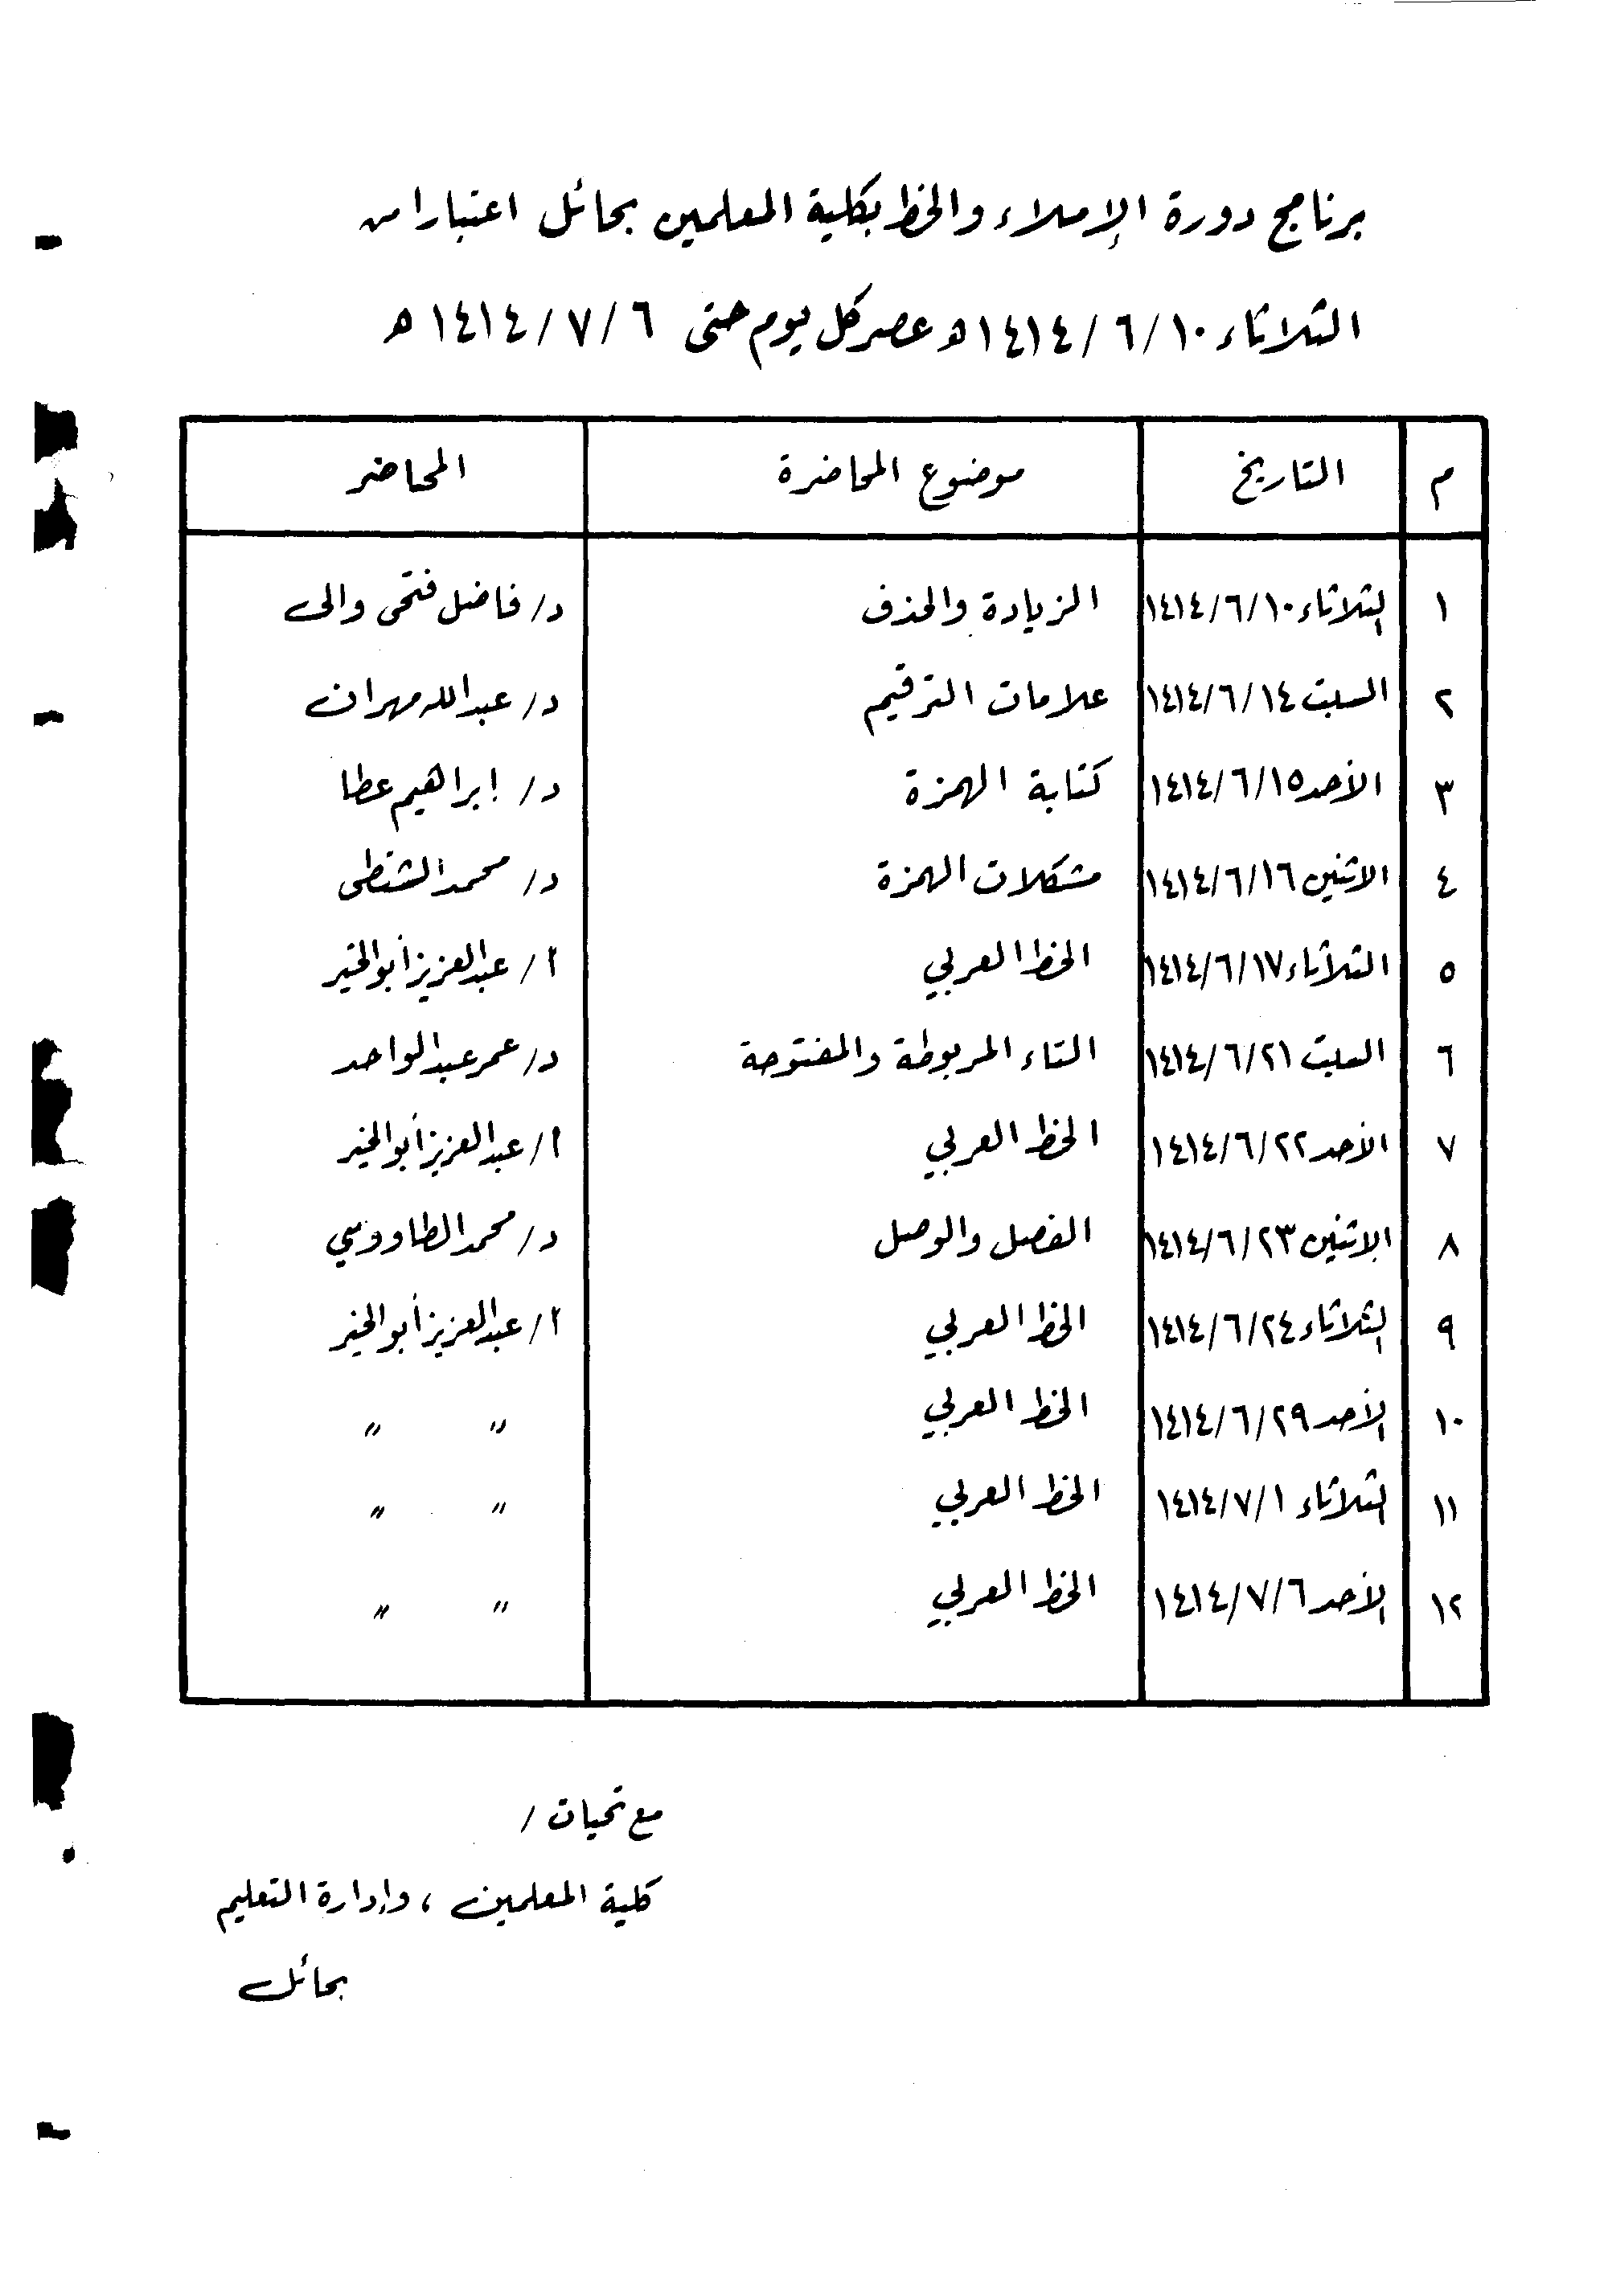 برنامج دورة الإملاء والخط بكلية المعلمين بحائل اعتبارا من
الثلاثاء ١٤١٤/٦/١٠هـ عصر كل يوم حتى ١٤١٤/٧/٦هـ
م التاريخ موضوع المحاضرة المحاضر
١ الثلاثاء ١٤١٤/٦/١٠ الزيادة والحذف د/ فاضل فتحى والى
٢ السبت ١٤١٤/٦/١٤ علامات الترقيم د/ عبدالله مهران
٣ الأحد ١٤١٤/٦/١٥ كتابة الهمزة د/ إبراهيم عطا
٤ الاثنين ١٤١٤/٦/١٦ مشكلات الهمزة د/ محمد الشنطى
٥ الثلاثاء ١٤١٤/٦/١٧ الخط العربي أ/ عبدالعزيز أبوالخير
٦ السبت ١٤١٤/٦/٢١ التاء المربوطة والمفتوحة د/ عمر عبدالواحد
٧ الأحد ١٤١٤/٦/٢٢ الخط العربي أ/ عبدالعزيز أبوالخير
٨ الاثنين ١٤١٤/٦/٢٣ الفصل والوصل د/ محمد الطاووسي
٩ الثلاثاء ١٤١٤/٦/٢٤ الخط العربي أ/ عبدالعزيز أبوالخير
١٠ الأحد ١٤١٤/٦/٢٩ الخط العربي " "
١١ الثلاثاء ١٤١٤/٧/١ الخط العربي " "
١٢ الأحد ١٤١٤/٧/٦ الخط العربي " "
مع تحيات /
كلية المعلمين ، وإدارة التعليم
بحائل